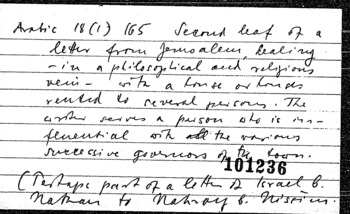 Arabic 18(1) 165 Second leaf of a
letter from Jerusalem, dealing
- in a philosophical and religious
vein - with a house or houses
rented to several persons. The
writer serves a person who is in-
fluential with all the various
successive governors of the town.
101236
(Perhaps part of a letter of Israel b.
Nathan to Nahray b. Nissim.